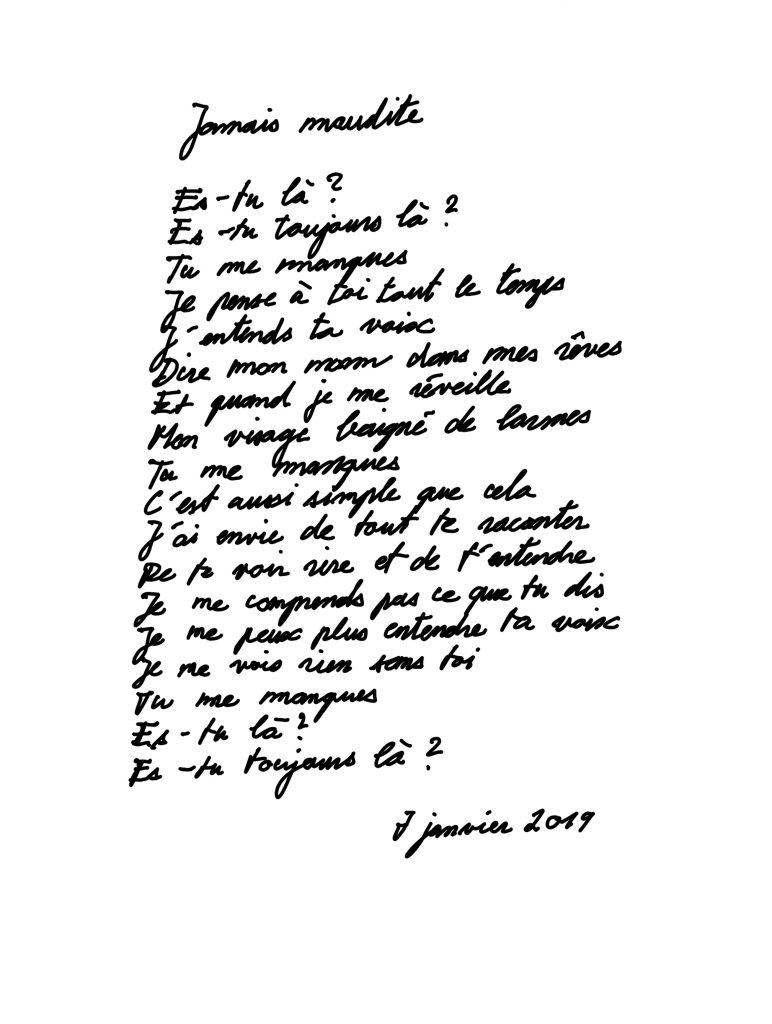 Jamais maudite
Es-tu là ?
Es-tu toujours là ?
Tu me manques
Je pense à toi tout le temps
J'entends ta voix
Dire mon nom dans mes rêves
Et quand je me réveille
Mon visage baigné de larmes
Tu me manques
C'est aussi simple que cela
J'ai envie de tout te raconter
De te voir rire et de t'entendre
Je ne comprends pas ce que tu dis
Je ne peux plus entendre ta voix
Je ne vois rien sans toi
Tu me manques
Es-tu là ?
Es-tu toujours là ?
7 janvier 2019